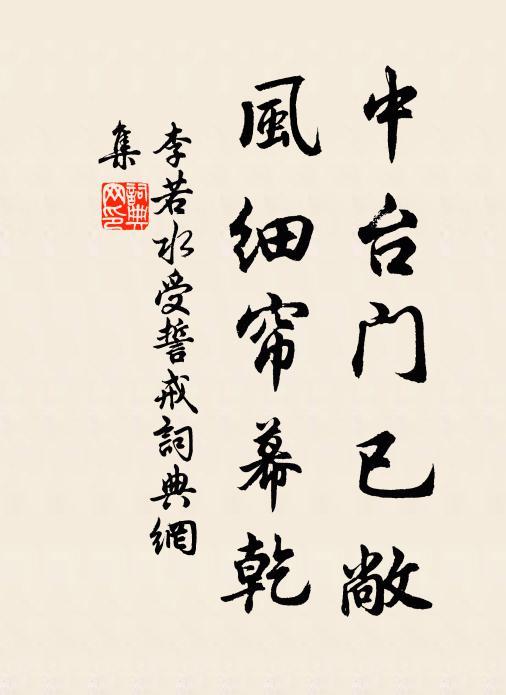 中台门已敞
風细帘幕乾
李若水受誓戒詞典網
集
詞典
网印